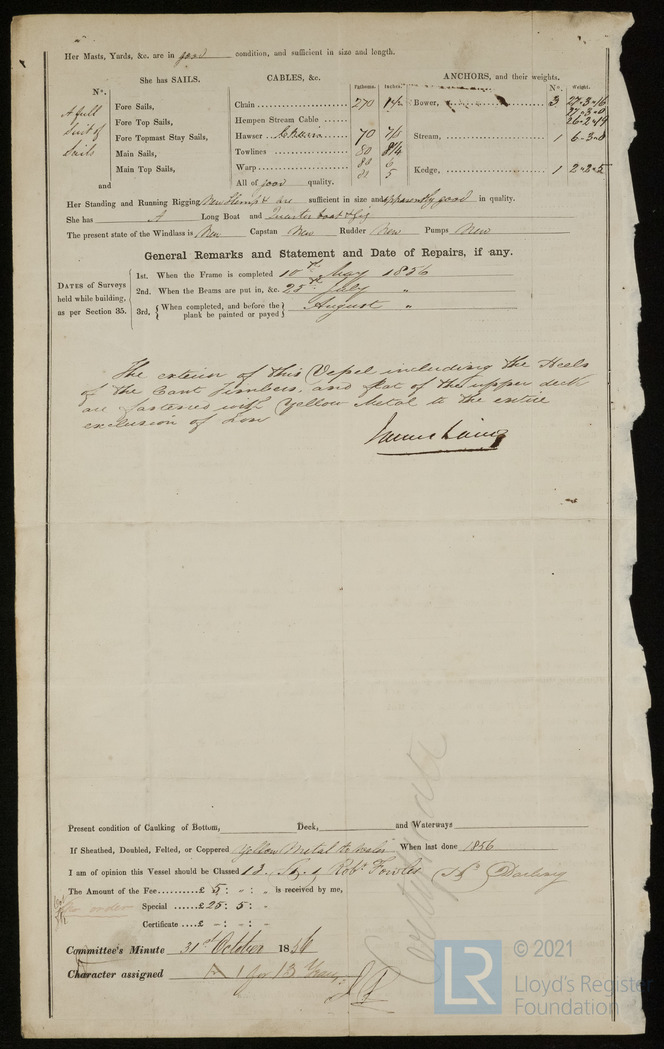 Her Masts, Yards, &c. are in good condition, and sufficient in size and length.
She has SAILS.
CABLES, &c.
ANCHORS, and their weights.
Nº.
Fathoms. Inches.
Nº. Weight.
A full
Suit of
Sails
and
Fore Sails,
Fore Top Sails,
Fore Topmast Stay Sails,
Main Sails,
Main Top Sails,
Chain 270
Hempen Stream Cable
Hawser Chain 70 7/8
Towlines 80 8 1/4
Warp 80 6
5
All of good quality.
Bower, 3 27-3-16
27-3-0
Stream, 1 6-3-8
Kedge, 1 2-2-5
Her Standing and Running Rigging New Hemp & are sufficient in size and apparently good in quality.
She has A Long Boat and Quarter boat & Gig
The present state of the Windlass is New Capstan New Rudder New Pumps New
General Remarks and Statement and Date of Repairs, if any.
DATES of Surveys
held while building,
as per Section 35.
1st. When the Frame is completed 10th May 1856
2nd. When the Beams are put in, &c. 25th July "
3rd, { When completed, and before the plank be painted or payed } August "
The exterior of this Vessel including the Heels
of the Cant Timbers, and flat of the upper deck
are fastened with Yellow Metal to the entire
exclusion of Iron
James Laing
Present condition of Caulking of Bottom, Deck, and Waterways
If Sheathed, Doubled, Felted, or Coppered Yellow Metal to Wales When last done 1856
I am of opinion this Vessel should be Classed 13 Robt Fowles
The Amount of the Fee £ 5 : - : - is received by me,
Special £ 25 : 5 : -
Certificate £ - : - : -
Committee's Minute 31st October 1856
Character assigned A 1 for 13 Years
Certificate
LR
© 2021
Lloyd's Register
Foundation